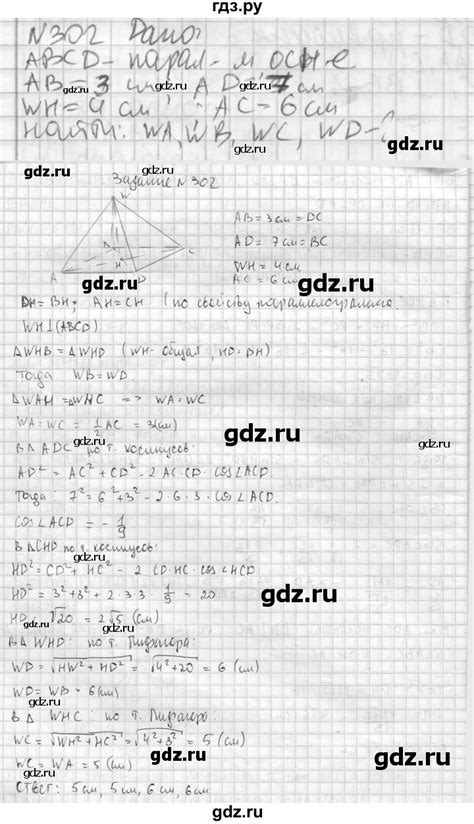 гдз.ру
N302 Дано:
ABCD - парал-м осн-е
AB = 3 см; AD = 7 см
WH = 4 см; AC = 6 см
Найти: WA, WB, WC, WD - ?
gdz.ru
gdz.ru
gdz.ru
Задание N 302
W
A
D
C
H
AB = 3 см = DC
AD = 7 см = BC
WH = 4 см
AC = 6 см
gdz.ru
gdz.ru
DH = BH; AH = CH (по свойству параллелограмма
WH⊥(ABCD)
ΔWHB = ΔWHD (WH - общая, HD = BH)
Тогда WB = WD
ΔWAH = ΔWHC => WA = WC
WA = WC = 1/2 AC = 3 см
gdz.ru
В Δ ADC по т. косинусов:
AD² = AC² + CD² - 2 AC·CD · cos∠ACD.
Тогда: 7² = 6² + 3² - 2·6·3·cos∠ACD
gdz.ru
cos∠ACD = - 1/9
В ΔCHD по т. косинусов:
HD² = CD² + HC² - 2 CD·HC · cos∠ACD
HD² = 3² + 3² + 2·3·3· 1/9 = 20
gdz.ru
HD = √20 = 2√5 (см)
gdz.ru
В Δ WHD: по т. Пифагора:
WD = √HW² + HD² = √4² + 20 = 6 (см)
gdz.ru
WD = WB = 6 (см)
gdz.ru
В Δ WHC: по т. Пифагора:
WC = √WH² + HC² = √4² + 3² = 5 (см)
WC = WA = 5 (см)
gdz.ru
Ответ: 5 см, 5 см, 6 см, 6 см
gdz.ru
gdz.ru